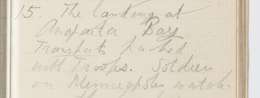 15. The landing at
Augusta Bay
Transports packed
with Troops. Soldiers
on Minneapolis watch